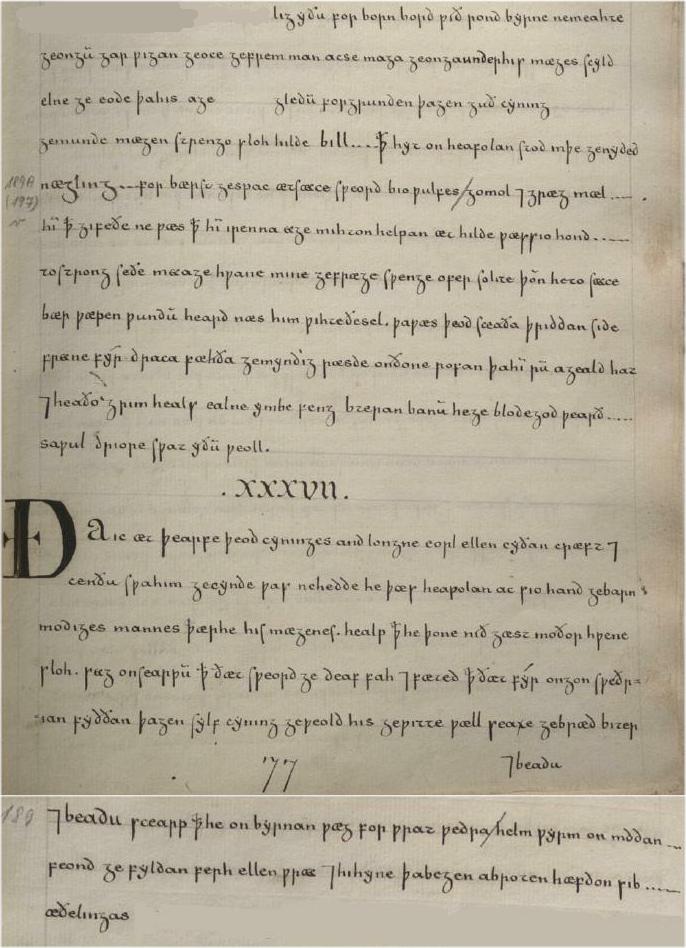 lig yðū for born bord ƿið rond byrne nemeahte
geongū gar ƿigan geoce gefrem man acse maga geongaunderhis mæges scyld
elne ge eode þahis age gledū forgrunden þagen guð cyning
gemunde mægen strengo sloh hilde bill....ꝥ hyt on heafolan stod niþe genyded
189A
(197)
v
nægling...for bærst gesƿac ætsæce sƿeord bioƿulfes/gomol ⁊ græg mæl.....
hī ꝥ gifeðe ne ƿæs ꝥ hī irenna æge mihton helpan æt hilde ƿæssio hond.....
tostrong seðe mæage hƿane mine gefræge sƿenge ofer solite þōn heto sæce
bær ƿæpen ƿundū heard næs him ƿihteðesel. þaƿæs þeod sceaða þriddan side
fræne fyr draca fæhða gemyndig ræsde onðone rofan þahī rū ageald hat
⁊heaðo grim heals ealne ymbe feng biteran banū hege blodegod ƿearð.....
saƿul driore sƿat yðū ƿeoll.
.XXXVII.
Ða ic æt þearfe þeod cyninges and longne eorl ellen cyðan cræft ⁊
cenðu sƿahim gecynde ƿas nehedde he þæs heafolan ac sio hand gebarn
modiges mannes þærhe his mægenes. healp ꝥhe þone nið gæst moðor hƿene
sloh. secg onsearƿū ꝥ ðæt sƿeord ge deaf fah ⁊ fæted ꝥ ðæt fyr ongon sƿeðr=
=ian syððan þagen sylf cyning geƿeold his geƿitte ƿæll seaxe gebræd biter
77
⁊beadu
189
⁊beadu scearp ꝥhe on byrnan ƿæg for ƿrat ƿedra/helm ƿyrm on mddan...
feond ge fyldan ferh ellen ƿræc ⁊hihyne þabegen abroten hæfdon sib.....
æðelingas